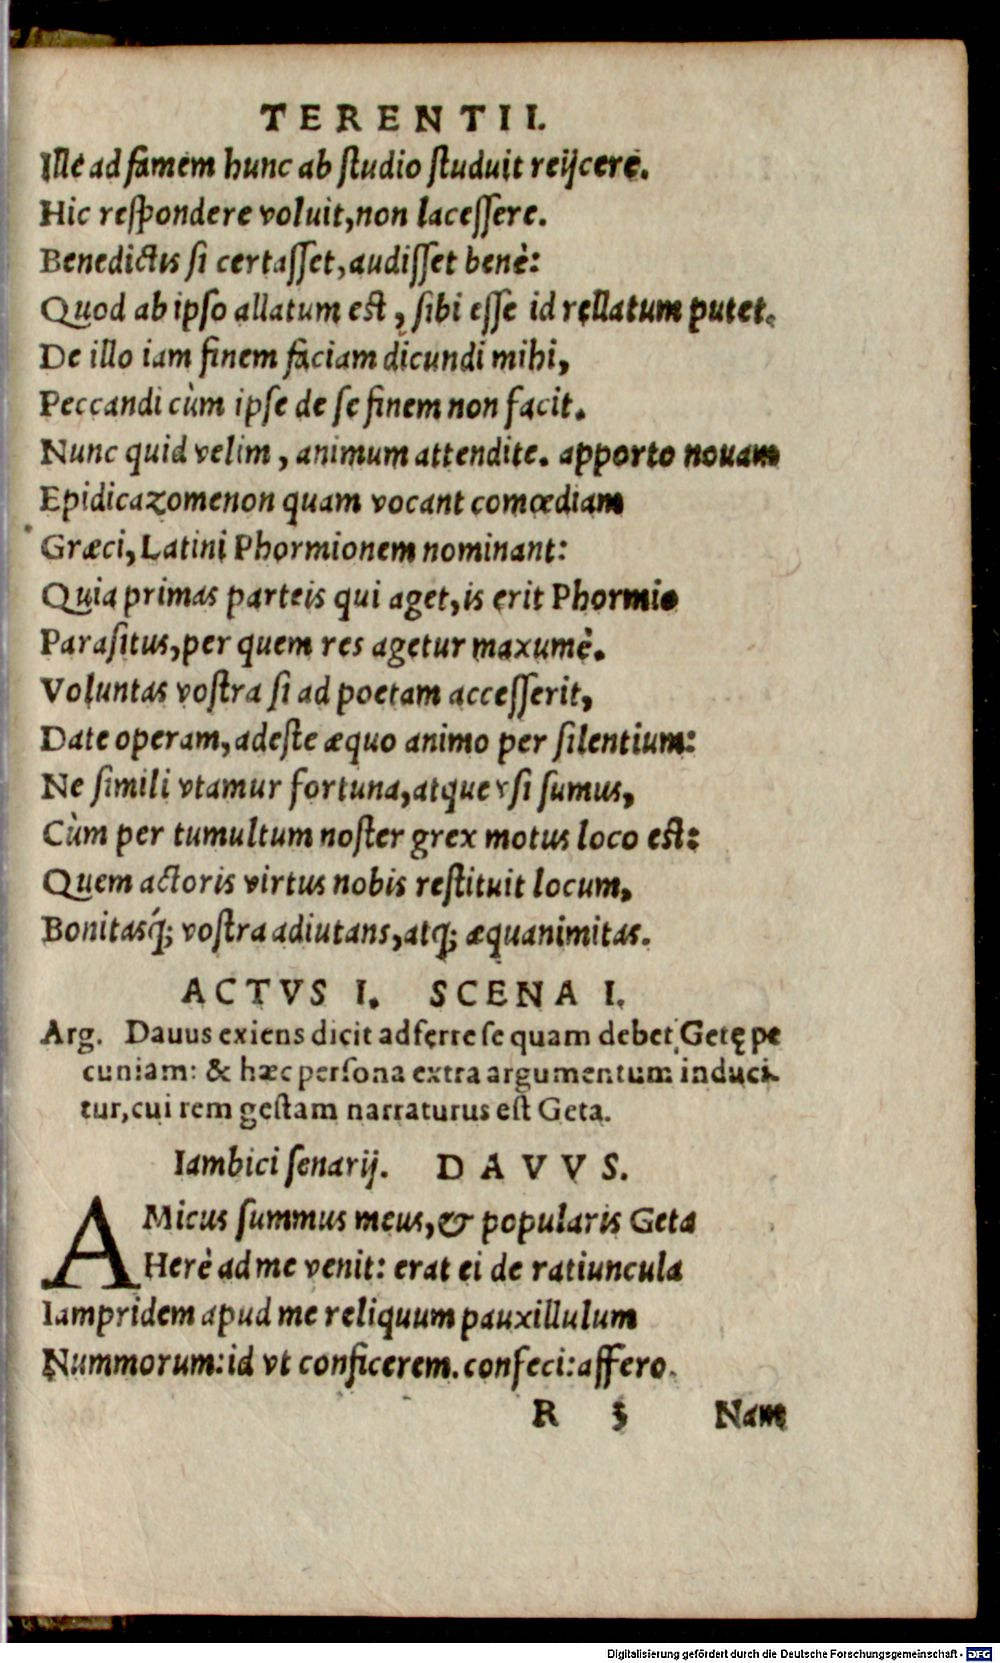 TERENTII.
Ille ad famem hunc ab studio studuit reijcere.
Hic respondere voluit, non lacessere.
Benedictis si certasset, audisset benè:
Quod ab ipso allatum est, sibi esse id rellatum putet.
De illo iam finem faciam dicundi mihi,
Peccandi cùm ipse de se finem non facit.
Nunc quid velim, animum attendite. apporto nouam
Epidicazomenon quam vocant comœdiam
Græci, Latini Phormionem nominant:
Quia primas parteis qui aget, is erit Phormio
Parasitus, per quem res agetur maxumè.
Voluntas vostra si ad poetam accesserit,
Date operam, adeste æquo animo per silentium:
Ne simili vtamur fortuna, atque vsi sumus,
Cùm per tumultum noster grex motus loco est:
Quem actoris virtus nobis restituit locum,
Bonitasq́; vostra adiutans, atq; æquanimitas.
ACTVS I. SCENA I.
Arg. Dauus exiens dicit adferre se quam debet Getę pe
cuniam: & hæc persona extra argumentum induci-
tur, cui rem gestam narraturus est Geta.
Iambici senarij. DAVVS.
AMicus summus meus, & popularis Geta
Herè ad me venit: erat ei de ratiuncula
Iampridem apud me reliquum pauxillulum
Nummorum: id vt conficerem. confeci: affero.
R 3 Nam
Digitalisierung gefördert durch die Deutsche Forschungsgemeinschaft - DFG